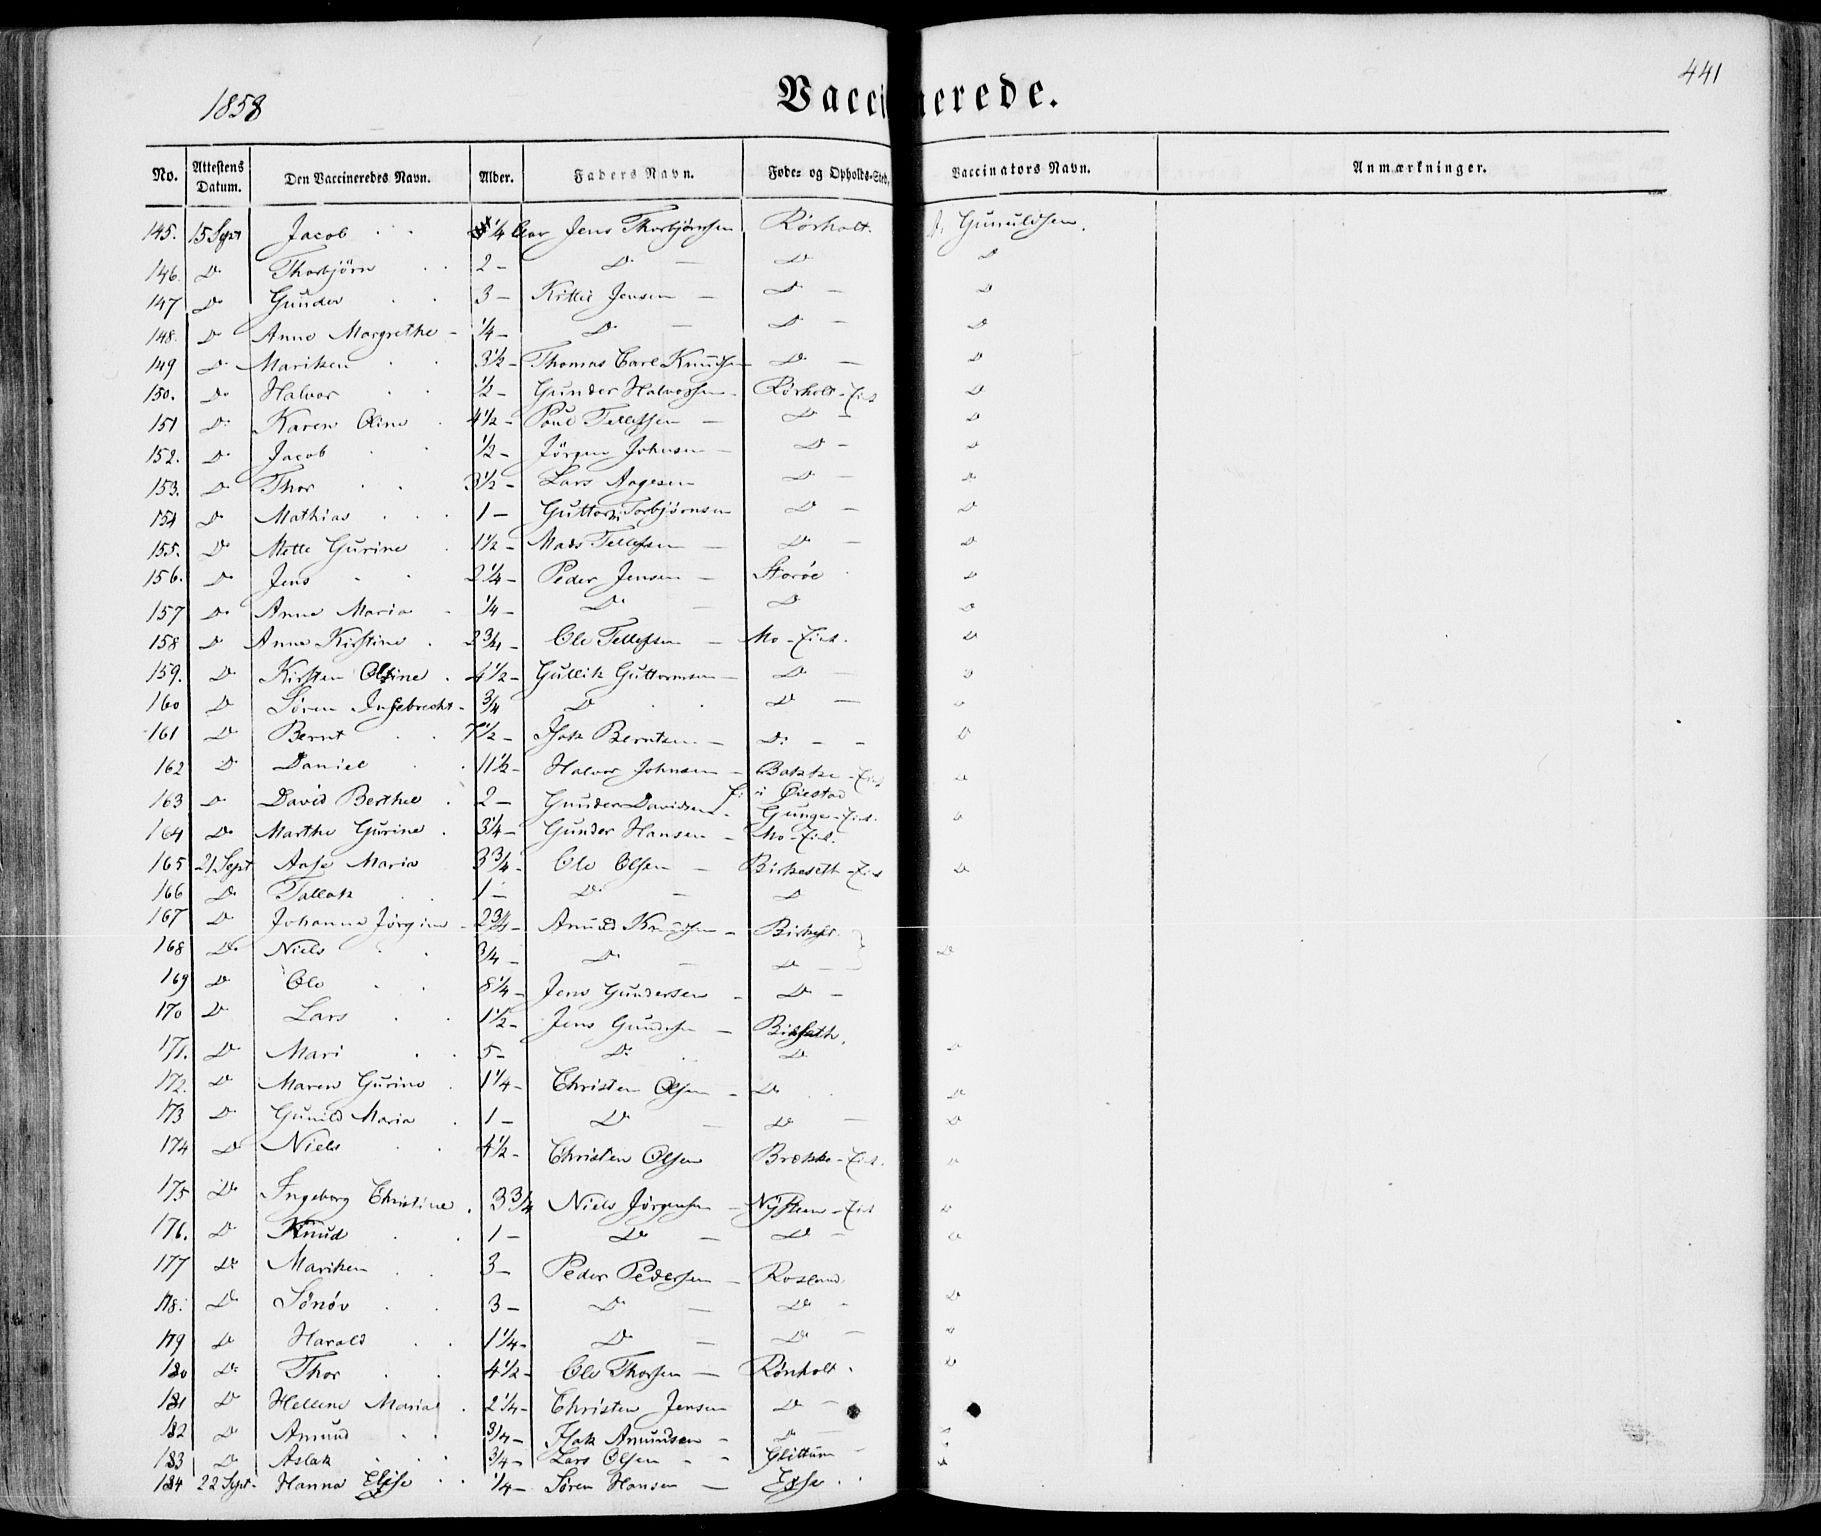 441
1858
Vaccinerede.
No. Attestens Datum. Den Vaccineredes Navn. Alder. Faders Navn. Føde- og Opholds-Sted. Vaccinators Navn. Anmærkninger.
145. 15 Sept Jacob 1/4 Aar Jens Thorbjørnsen Rørholt. Gunuldsen.
146. Do Thorbjørn 2 - Do - Do Do
147 Do Gunder 3 - Kittil Jensen - Do - Do
148. Do Anne Margrethe - 1/4 - Do - Do - Do
149 Do Mariken 3 1/2 - Thomas Carl Knudsen Do - Do
150. Do Halvor 1/2 - Gunder Halvorsen - Rørholt - Eiet Do
151 Do Karen Oline 4 1/2 - Poul Tellefsen - Do - Do
152. Do Jacob 1/2 - Jörgen Johnsen - Do - Do
153. Do Thor 3 1/2 - Lars Aagesen Do - Do
154 Do Mathias 1 - Guttorm Torbjørnsen Do - Do
155. Do Mette Gurine 1 1/2 - Mads Tellefsen - Do - Do
156. Do Jens 2 1/4 - Peder Jensen - Storöe Do
157 Do Anne Maria 1/4 - Do - Do Do
158 Do Anne Kirstine 2 3/4 - Ole Tellefsen - Mo - Eiet. Do
159. Do Kirsten Oline 4 1/2 - Gullik Guttormsen - Do - Do
160 Do Søren Ingebrecht - 3/4 Do Do - Do
161 Do Bernt 7 1/2 - Isak Berntsen - Do - - Do
162 Do Daniel 11 1/2 - Halvor Johnsen - Bakke - Eiet Do
163 Do David Berthel 2 - Gunder Davidsen - i Øiestad Gunge - Eiet. Do
164 Do Marthe Gurine 3 1/4 - Gunder Hansen - Mo - Eiet.
165 21 Sept Aase Maria 3 3/4 - Ole Olsen - Birkeseth - Eiet Do
166 Do Tallak 1 - Do - Do
167 Do Johanne Jørgine - 2 3/4 - Amund Knudsen - 
168 Do Niels 3/4 - Do - Do - Do
169 Do Ole 8 1/4 - Jens Gundersen - Do -
170 Do Lars 1 1/2 - Jens Gundersen -
171. Do Mari 5 - Do Do Do
172. Do Maren Gurine 1 1/4 - Christen Olsen - Do Do
173 Do Gunild Maria 1 - Do - Do - Do
174 Do Niels 4 1/2 - Christen Olsen Brekke - Eiet. Do
175 Do Ingeborg Christine 3 3/4 Niels Jørgensen - - Eiet Do
176. Do Knud 1 - Do - Do - Do
177 Do Mariken 3 - Peder Pedersen - Rosland
178. Do Sönöv 3 - Do - Do - Do
179 Do Harald 1 1/4 - Do - Do - Do
180 Do Thor 4 1/2 - Ole Thorsen - Rönholt Do
181 Do Hellene Maria 2 1/4 - Christen Jensen Do -
182 Do Amund 3/4 - Isak Amundsen - Do - Do
183 Do Aslak 3/4 - Lars Olsen - - Glittum - Do
184 22 Sept. Hanna Elise 1/4 - Søren Hansen -